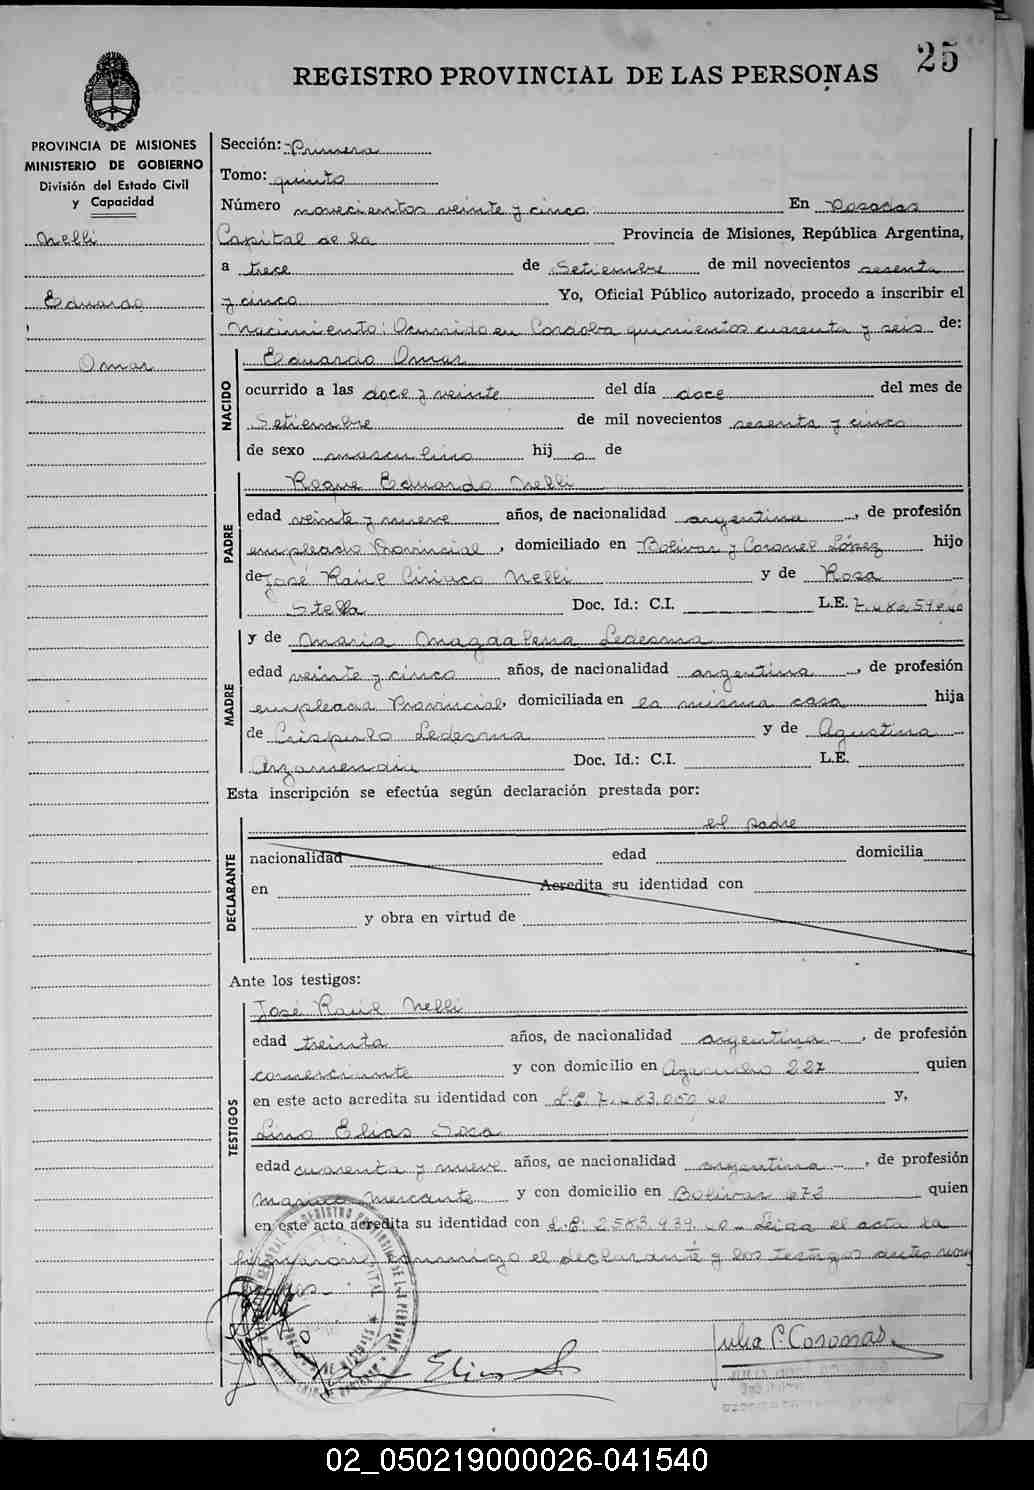 25
REGISTRO PROVINCIAL DE LAS PERSONAS
PROVINCIA DE MISIONES
MINISTERIO DE GOBIERNO
División del Estado Civil
y Capacidad
Nelli
Eduardo
Omar
Sección: Primera
Tomo: quinto
Número novecientos veinte y cinco En Posadas
Capital de la Provincia de Misiones, República Argentina,
a trece de Setiembre de mil novecientos sesenta
y cinco Yo, Oficial Público autorizado, procedo a inscribir el
Nacimiento: Ocurrido en Cordoba quinientos cuarenta y seis de:
NACIDO
Eduardo Omar
ocurrido a las doce y veinte del día doce del mes de
Setiembre de mil novecientos sesenta y cinco
de sexo masculino hij o de
PADRE
Roque Eduardo Nelli
edad veinte y nueve años, de nacionalidad argentina, de profesión
empleado Provincial, domiciliado en Bolivar y Coronel López hijo
de José Raúl Ciriaco Nelli y de Rosa
Stella Doc. Id.: C.I. L.E.
MADRE
y de Maria Magdalena Ledesma
edad veinte y cinco años, de nacionalidad argentina, de profesión
empleada Provincial, domiciliada en la misma casa hija
de Crispulo Ledesma y de Agustina
Arzamendia Doc. Id.: C.I. L.E.
Esta inscripción se efectúa según declaración prestada por:
el padre
DECLARANTE
nacionalidad edad domicilia
en Acredita su identidad con
y obra en virtud de
Ante los testigos:
TESTIGOS
José Raúl Nelli
edad treinta años, de nacionalidad argentina, de profesión
comerciante y con domicilio en Ayacucho 227 quien
en este acto acredita su identidad con L.E. y,
Luis Elias Soca
edad cuarenta y nueve años, de nacionalidad argentina, de profesión
Marino Mercante y con domicilio en Bolivar 673 quien
en este acto acredita su identidad con L.E: 2583.939. Leida el acta la
firmaron conmigo el declarante y los testigos
Elias S
Julia P. Coronas
02_050219000026-041540